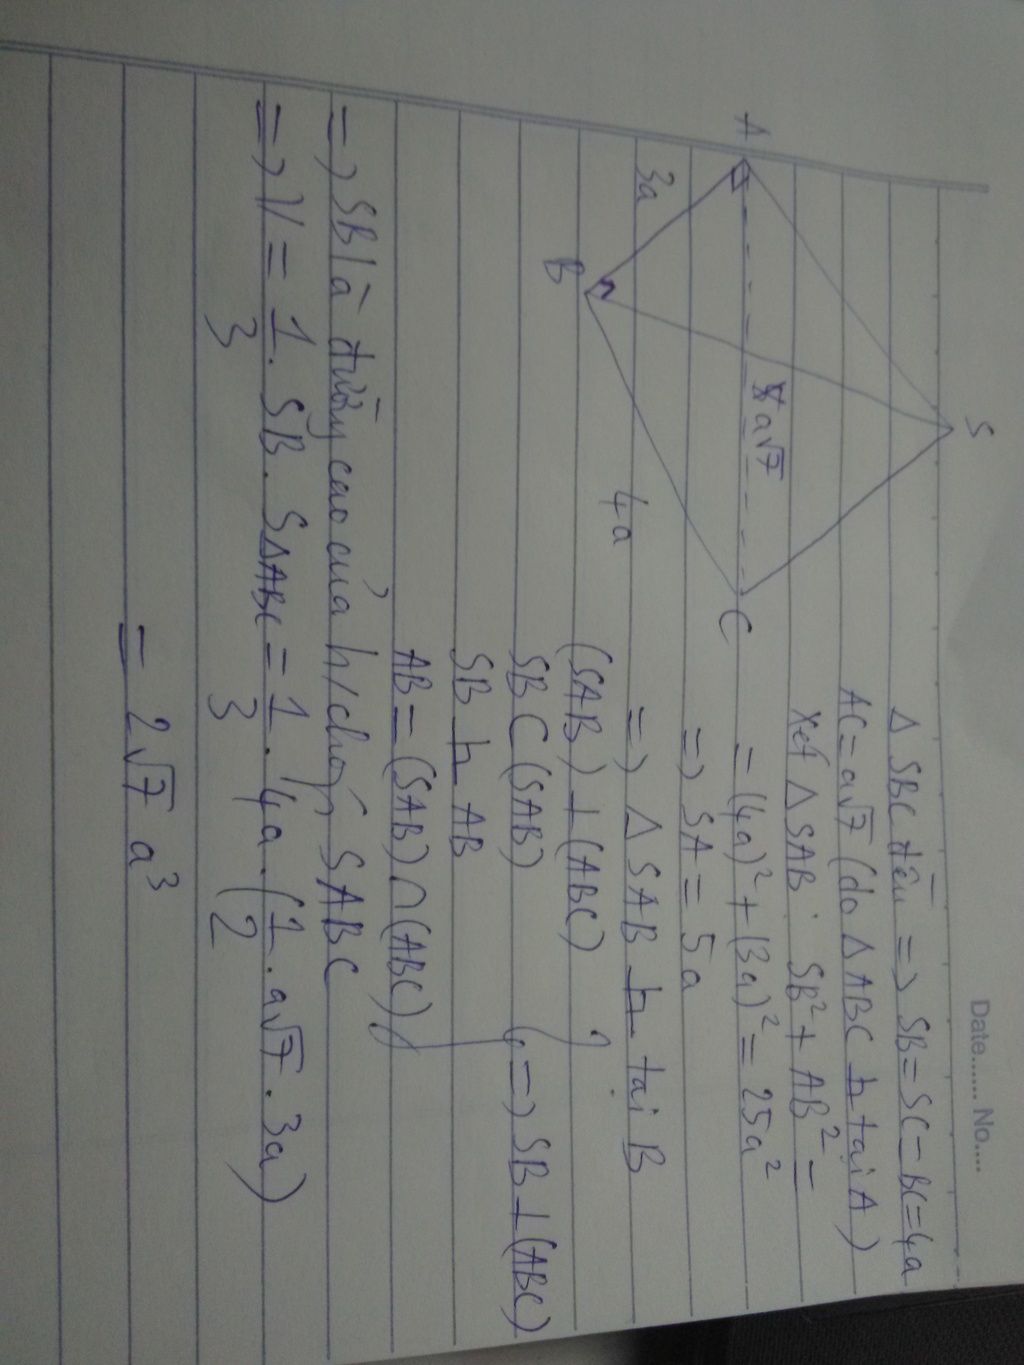 Date....... No....
S
A
B
C
3a
a√7
4a
Δ SBC đều => SB = SC = BC = 4a
AC = a√7 (do Δ ABC ⊥ tại A)
Xét Δ SAB: SB² + AB² =
= (4a)² + (3a)² = 25a²
=> SA = 5a
=> Δ SAB ⊥ tại B
(SAB) ⊥ (ABC)
SB ⊂ (SAB)
SB ⊥ AB
AB = (SAB) ∩ (ABC)
=> SB ⊥ (ABC)
=> SB là đường cao của h/chóp SABC
=> V = 1/3 . SB . SΔABC = 1/3 . 4a . (1/2 . a√7 . 3a)
= 2√7 a³